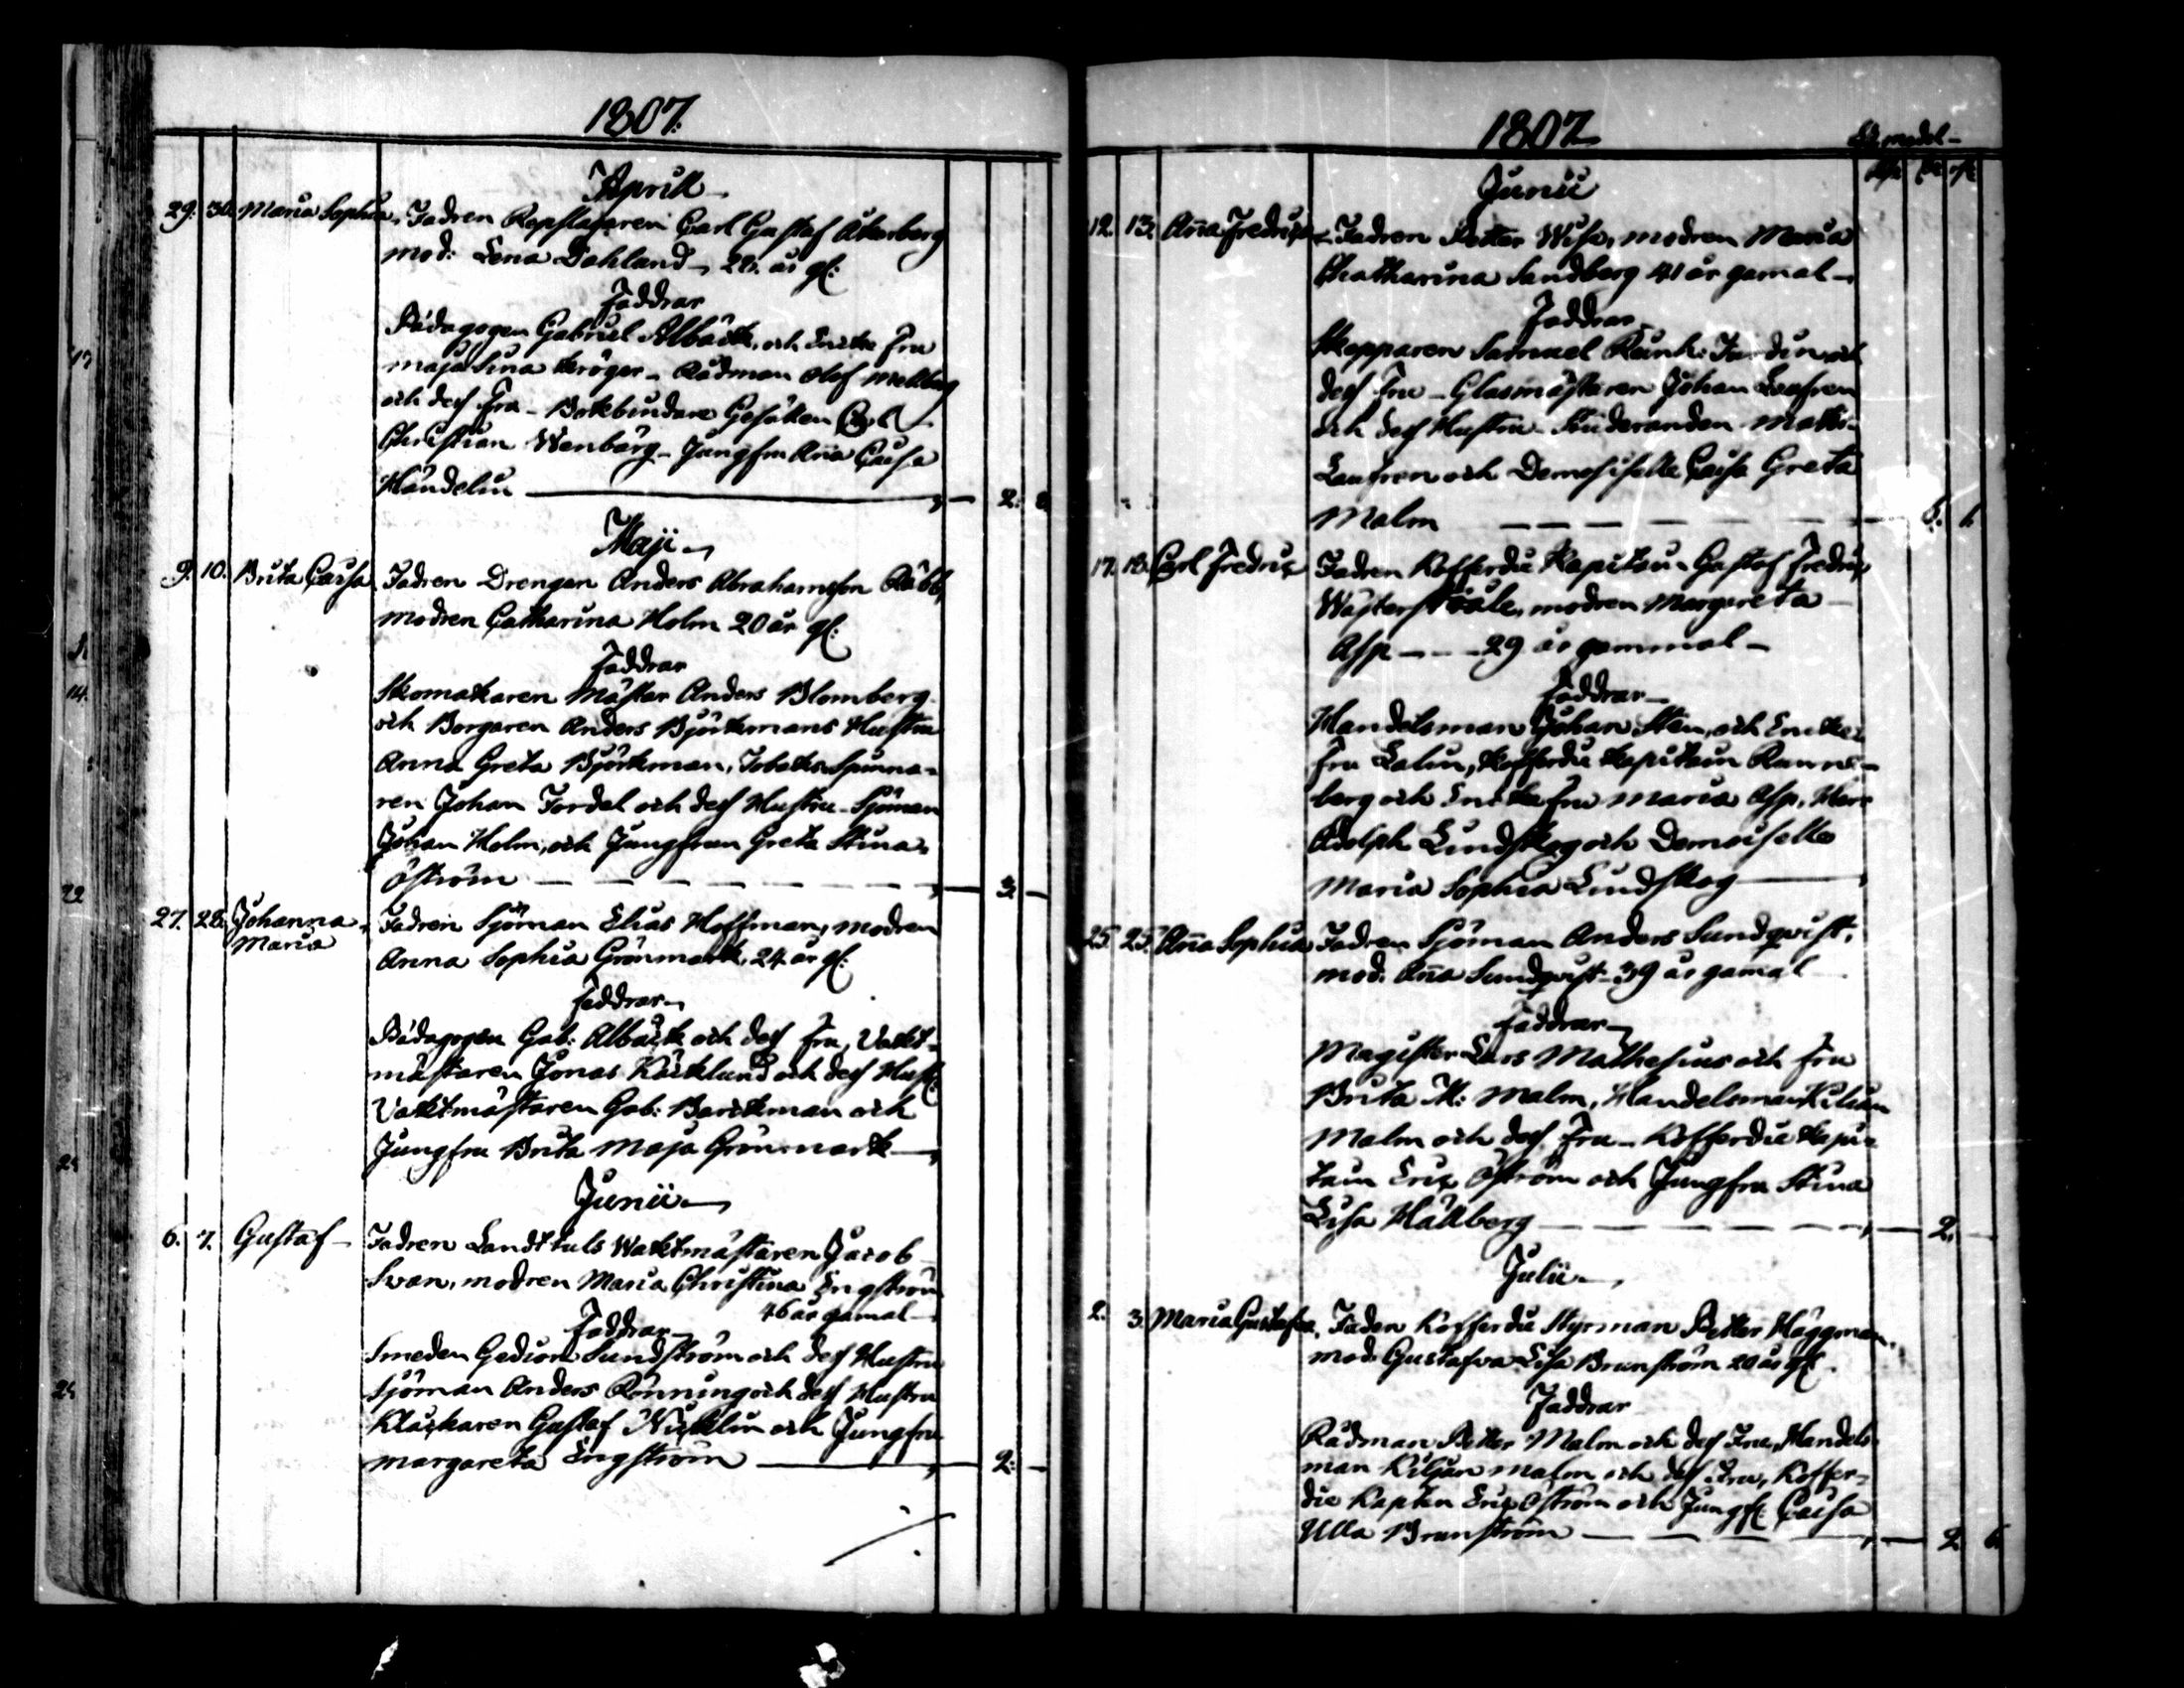 1807.
Aprill
29. 30. Maria Sophia, Fadren Repslagaren Carl Gustaf Åkerberg
mod: Lena Dahland, 28. år gl:
Faddrar
Pädagogen Gabriel Albäck, och Encke Fru
Maja Lina Kröger - Rådman Olof Mellberg
och dess Fru - Bokbindare Gesällen Carl
Christian Wenberg - Jungfru Ana Caisa
Handelin 2:
Maji
9. 10. Brita Caisa Fadren Drengen Anders Abrahamsson Räbb,
modren Catharina Holm 20 år gl:
Faddrar
Skomakaren Mästar Anders Blomberg
och Borgaren Anders Björkmans Hustru
Anna Greta Björkman, Tobaks Spinna-
ren Johan Fordel och dess Hustru - Sjöman
Johan Holm, och Jungfrun Greta Stina
Öström 3.
27. 28. Johanna Maria Fadren Sjöman Elias Hoffman, modren
Anna Sophia Grönmark, 24 år gl:
Faddrar
Pädagogen Gab: Albäck och dess Fru, Vakt-
mästaren Jonas Käcklund och dess Hust:
Vaktmästaren Gab: Barckman och
Jungfru Brita Maja Grönmark
Junii
6. 7. Gustaf - Fadren Landttuls Waktmästaren Jacob
Svan, modren Maria Christina Engström
46 år gamal
Faddrar
Smeden Gedion Sundström och dess Hustru
Sjöman Anders Rönning och dess Hustru
Klåckaren Gustaf Nicklin och Jungfru
Margareta Engström 2.
1807
Junii
12. 13. Aña Fredrica - Fadren Petter Wisa, modren Maria
Chatharina Sandberg 41 år gamal
Faddrar
Skepparen Samuel Reinh: och
dess Fru - Glasmästaren Johan Laufren
och dess Hustru Studeranden Maths
Laufren och Demoiselle Caisa Greta
Malm 6. 1.
17. 18. Carl Fredric Fadren Kofferdie Kapitain Gustaf Fredric
Wäjterstråle, modren Margareta
Asp - - - 29 år gammal
Faddrar
Handelsman Johan Sten, och Encke
Fru Lalin, Kofferdie Kapitain Runne-
berg och Encke Fru Maria Asp, Herr
Adolph Lindskog och Demoiselle
Maria Sophia Lindskog
25. 25. Aña Sophia Fadren Sjöman Anders Sundqvist,
mod. Aña Sundqvist - 39 år gamal
Faddrar
Magister Lars Mathesius och Fru
Brita M: Malm, Handelsman Kilian
Malm och dess Fru - Kofferdie Kapi-
tain Eric Öström och Jungfru Stina
Lisa Hällberg 2.
Julii
2. 3. Maria Gustafva, Faden Kofferdie Styrman Petter Häggman,
mod. Gustafva Lisa Brunström 20 år gl.
Faddrar
Rådman Petter Malm och dess Fru, Handels
man Kiljan Malm och dess Fru, Koffer-
die Kapten Eric Öström och Jungf: Caisa
Ulla Brunström 2 6.